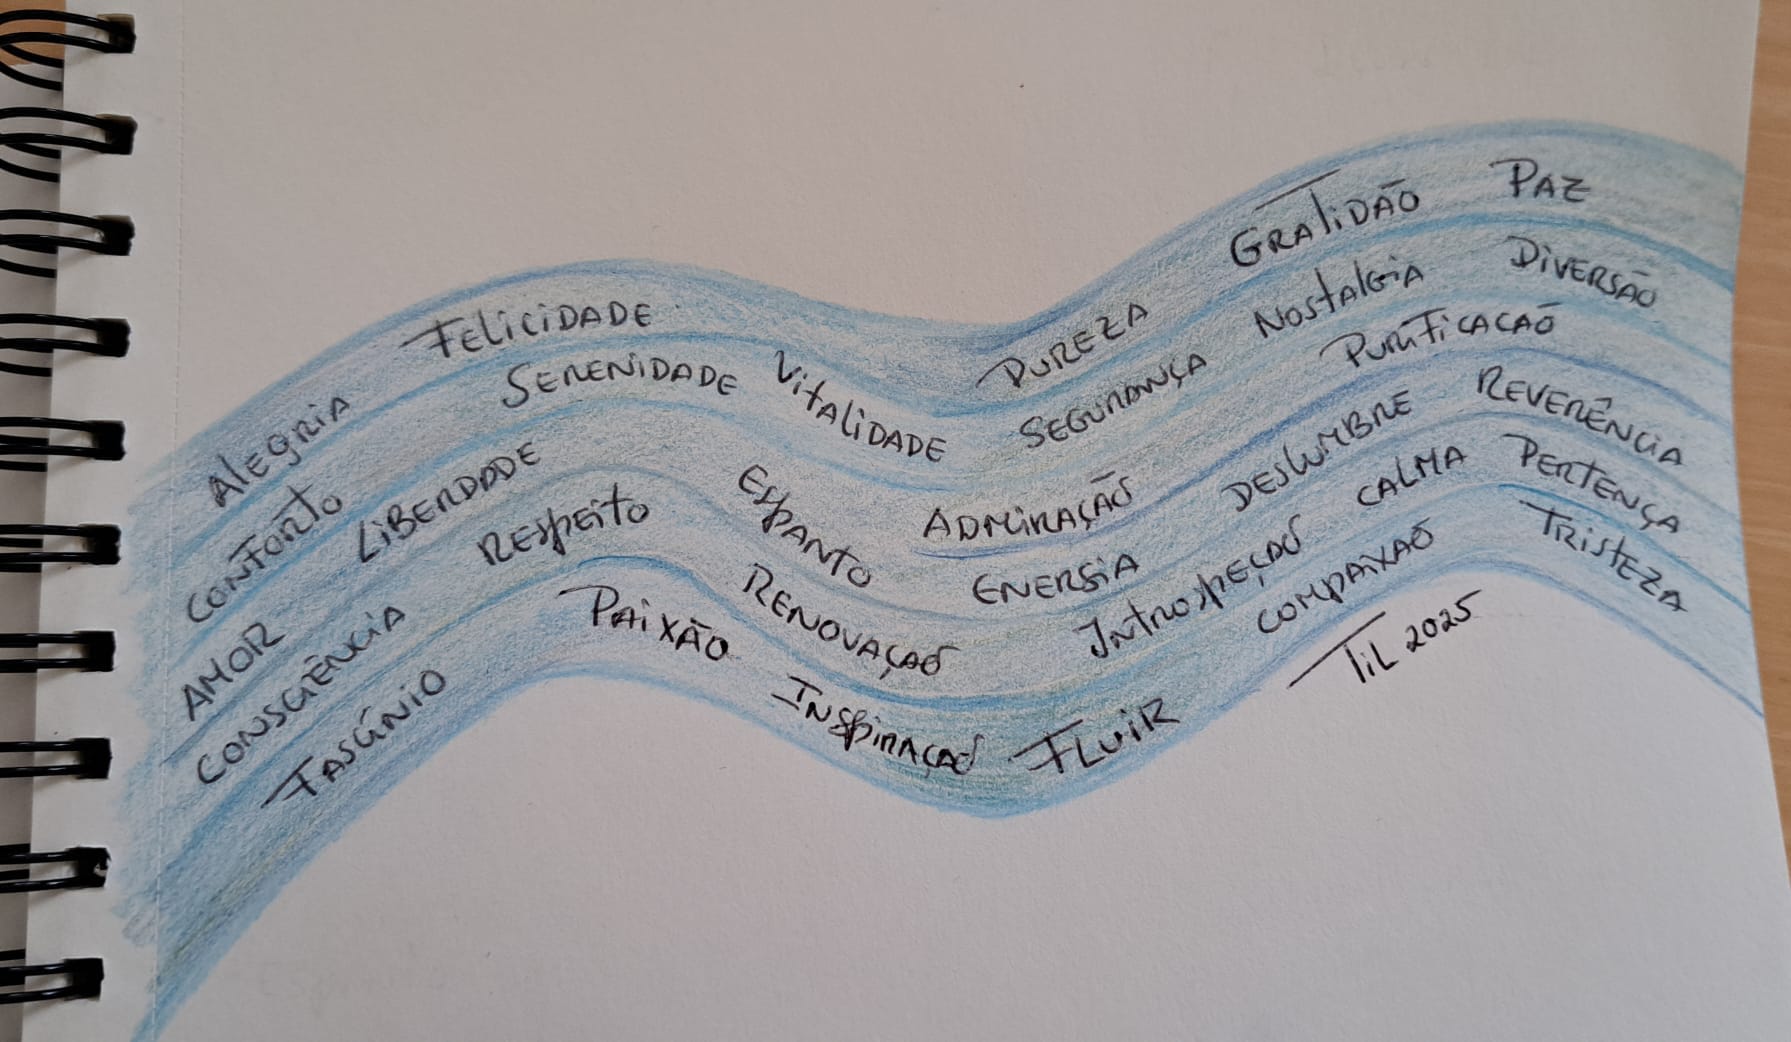 FELICIDADE
ALEGRIA
SERENIDADE
VITALIDADE
PUREZA
GRATIDÃO
PAZ
CONFORTO
LIBERDADE
SEGURANÇA
NOSTALGIA
DIVERSÃO
AMOR
RESPEITO
ESPANTO
ADMIRAÇÃO
PURIFICACAÕ
CONSCIÊNCIA
RENOVAÇAÕ
ENERGIA
DESLUMBRE
REVERÊNCIA
FASCÍNIO
PAIXÃO
INTROSPEÇAÕ
CALMA
PERTENÇA
INSPIRAÇAÕ
FLUIR
COMPAIXAÕ
TRISTEZA
TIL 2025